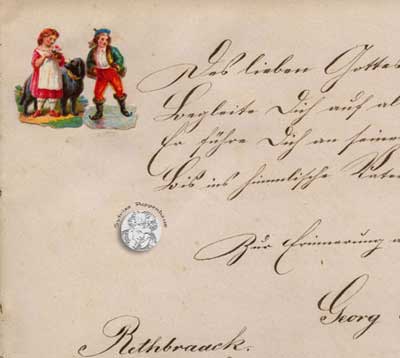 Des lieben Gottes
Begleite Dich auf al
Er führe Dich an seine
Bis ins himmlische Vater
Zur Erinnerung a
Georg
Rethbraack.